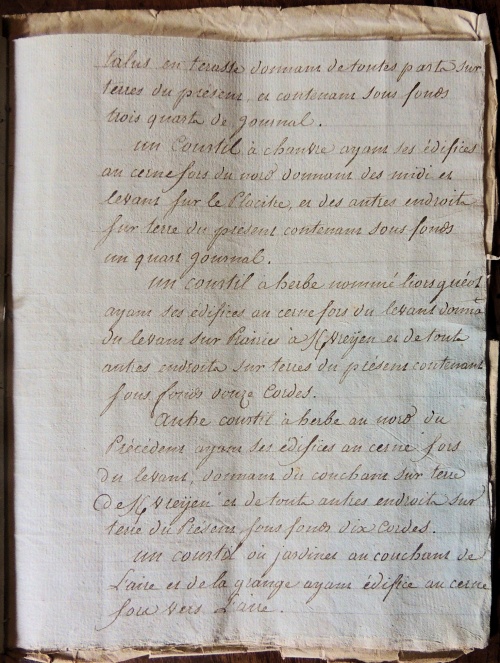 talus en terasse donnant de toutes parts sur
terres du présent, et contenant sous fonds
trois quarts de journal.
un Courtil à chanvre ayant ses édifices
au cerne fors du nord donnant des midi et
levant sur le Placitre, et des autres endroits
sur terre du présent contenant sous fonds
un quart journal.
un courtil a herbe nommé liorsguéot
ayant ses édifices au cerne fors du levant donnt
du levant sur Prairies à Mr Vreÿen et de tout
autres endroits sur terres du présent contenant
sous fonds douze Cordes.
Autre courtil à herbe au nord du
Précédent ayant ses édifices au cerne fors
du levant, donnant du couchant sur terre
De Mr Vreÿen et de tout autres endroits sur
terre du Présent sous fonds dix Cordes.
un courtil ou jardinet au couchant de
L'aire et de la grange ayant édifice au cerne
fors vers L'aire.